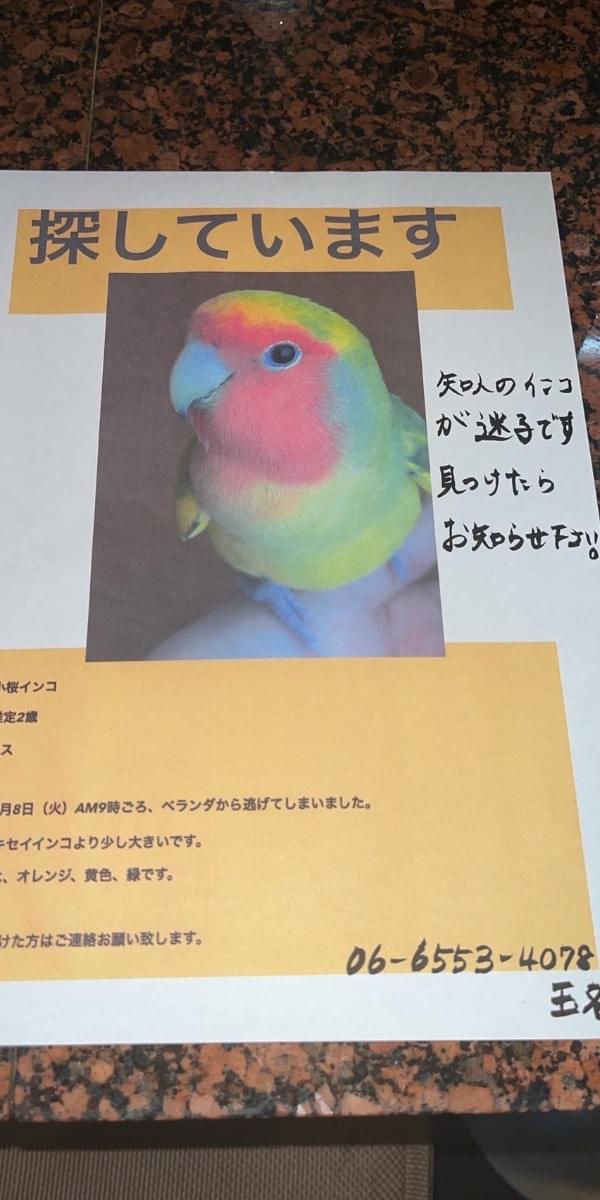 探しています
知人のインコ
が迷子です
見つけたら
お知らせ下さい。
小桜インコ
推定2歳
ス
月8日(火)AM9時ごろ、ベランダから逃げてしまいました。
キセイインコより少し大きいです。
、オレンジ、黄色、緑です。
けた方はご連絡お願い致します。
06-6553-4078